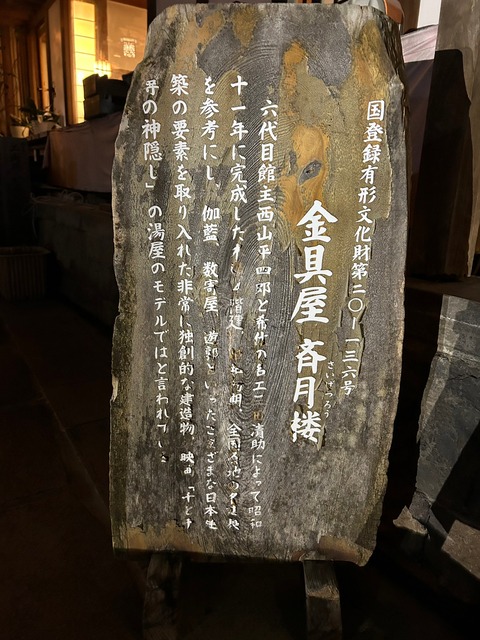 国登録有形文化財第二〇ー一三六号
金具屋 斉月楼
さいげつろう
六代目館主西山平四郎と希代の名工三田清助によって昭和
十一年に完成した木造 階建 全国各地の名建築
を参考にし、伽藍 数寄屋 遊郭といったさまざまな日本建
築の要素を取り入れた非常に独創的な建造物 映画「千と千
尋の神隠し」の湯屋のモデルではと言われている